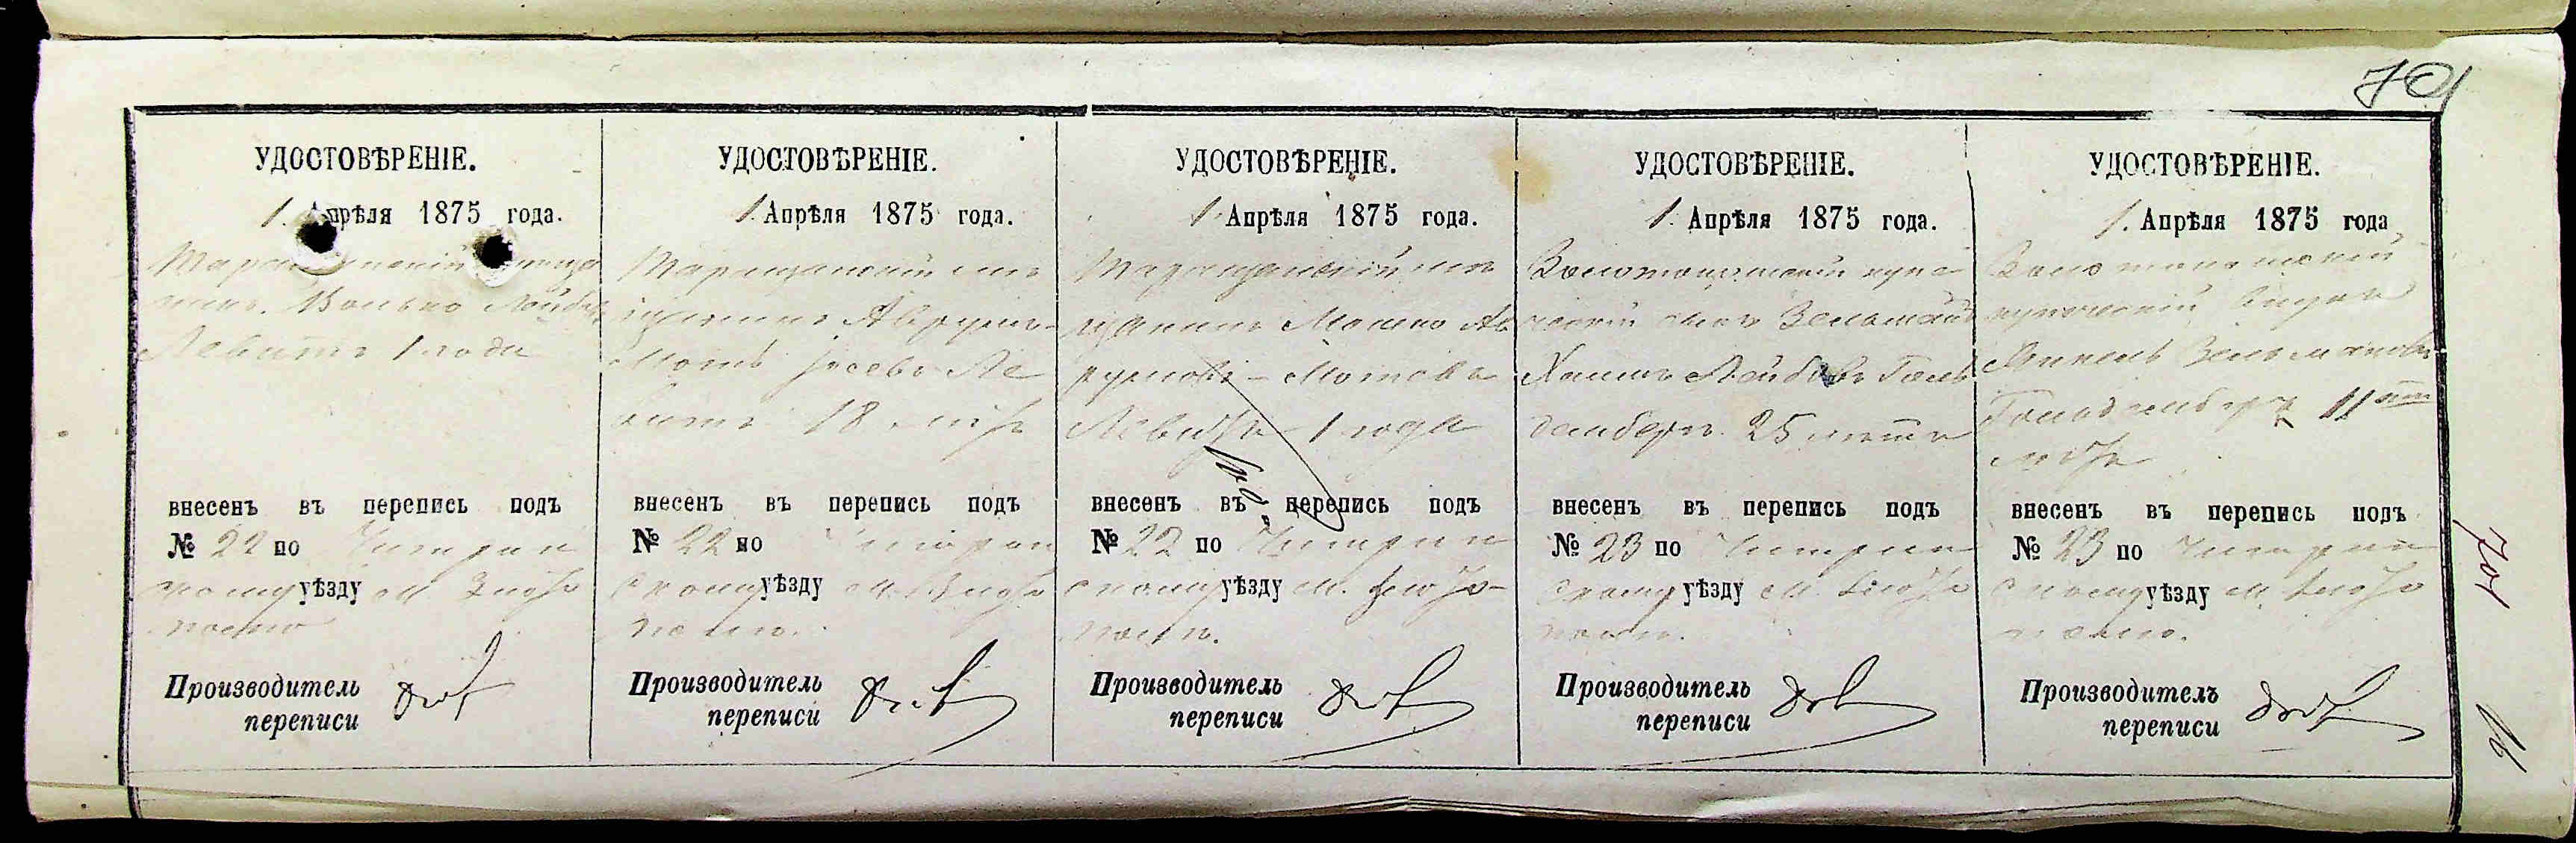 701
УДОСТОВѢРЕНІЕ.
1. Апрѣля 1875 года.
Таращанскій мѣща
нинъ Волько Лейбовъ
Левитъ 1 года
внесенъ въ перепись подъ
№ 22 по Чигирин
скому уѣзду м. Злато
полю
Производитель
переписи
УДОСТОВѢРЕНІЕ.
1. Апрѣля 1875 года.
Таращанскій мѣ
щанинъ Аврумъ-
Мотъ Іосевъ Ле
витъ 18 лѣтъ
внесенъ въ перепись подъ
№ 22 по Чигирин
скому уѣзду м. Злато
полю.
Производитель
переписи
УДОСТОВѢРЕНІЕ.
1. Апрѣля 1875 года.
Таращанскій мѣ
щанинъ Мошко Ав
румовъ-Мотовъ
Левитъ 1 года
внесенъ въ перепись подъ
№ 22 по Чигирин
скому уѣзду м. Злато-
полю.
Производитель
переписи
УДОСТОВѢРЕНІЕ.
1. Апрѣля 1875 года.
Золотоношскій купе
ческій сынъ Зельман
Хаимъ Лейбовъ Голь
денберг. 25 лѣтъ
внесенъ въ перепись подъ
№ 23 по Чигирин
скому уѣзду м. Злато
полю.
Производитель
переписи
УДОСТОВѢРЕНІЕ.
1. Апрѣля 1875 года
Золотоношскій
купеческій внукъ
Зельманов
Гольденберг 11
внесенъ въ перепись подъ
№ 23 по Чигирин
скому уѣзду м. Злато
полю.
Производитель
переписи
701